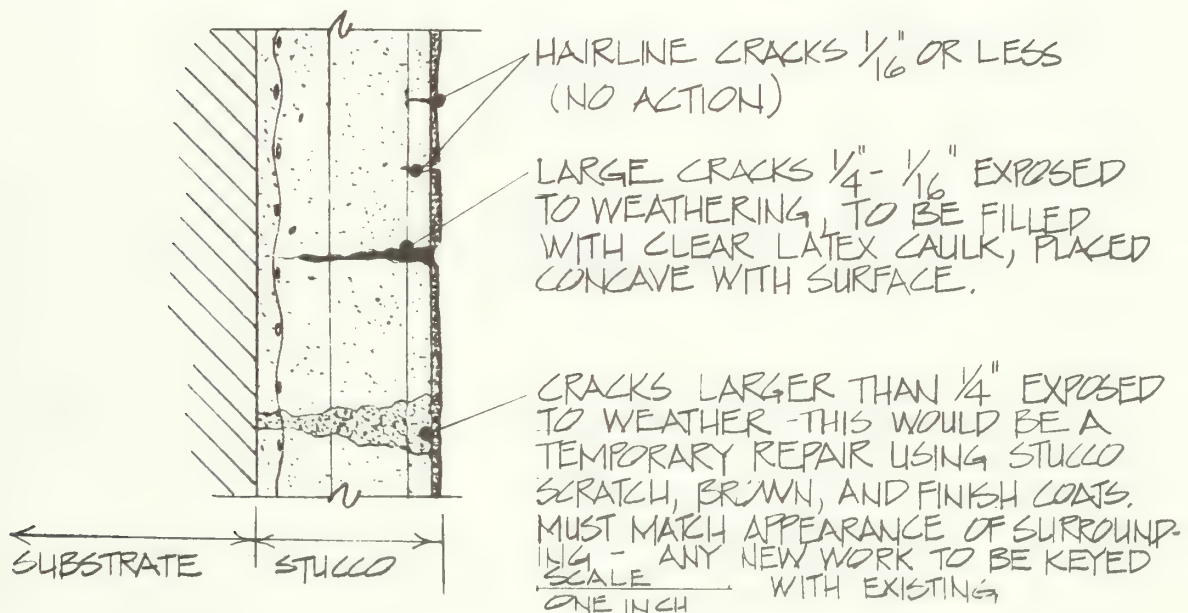 HAIRLINE CRACKS 1/16" OR LESS
(NO ACTION)
LARGE CRACKS 1/4"- 1/16" EXPOSED
TO WEATHERING, TO BE FILLED
WITH CLEAR LATEX CAULK, PLACED
CONCAVE WITH SURFACE.
CRACKS LARGER THAN 1/4" EXPOSED
TO WEATHER - THIS WOULD BE A
TEMPORARY REPAIR USING STUCCO
SCRATCH, BROWN, AND FINISH COATS.
MUST MATCH APPEARANCE OF SURROUND-
ING - ANY NEW WORK TO BE KEYED
WITH EXISTING
SUBSTRATE STUCCO
SCALE
ONE INCH